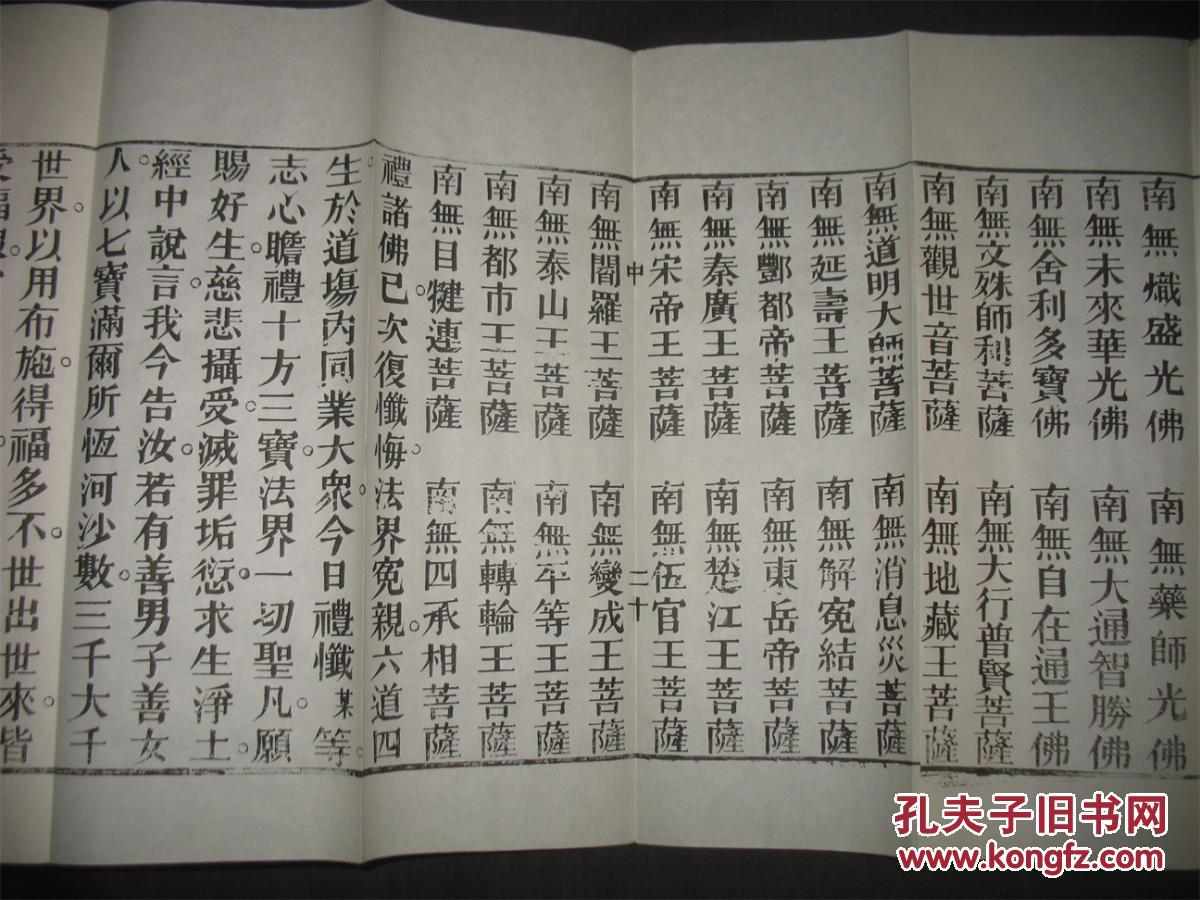 南無熾盛光佛　南無藥師光佛
南無未來華光佛　南無大通智勝佛
南無舍利多寶佛　南無自在通王佛
南無文殊師利菩薩　南無大行普賢菩薩
南無觀世音菩薩　南無地藏王菩薩
南無道明大師菩薩　南無消息災菩薩
南無延壽王菩薩　南無解冤結菩薩
南無酆都帝菩薩　南無東岳帝菩薩
南無秦廣王菩薩　南無楚江王菩薩
南無宋帝王菩薩　南無伍官王菩薩
中　二十
南無閻羅王菩薩　南無變成王菩薩
南無泰山王菩薩　南無平等王菩薩
南無都市王菩薩　南無轉輪王菩薩
南無目犍連菩薩　南無四承相菩薩
禮諸佛已。次復懺悔。法界冤親。六道四
生。於道場內同業大衆。今日禮懺某等。
志心瞻禮十方三寶。法界一切聖凡。願
賜好生。慈悲攝受。滅罪垢。愆求生淨土。
經中說言。我今告汝。若有善男子善女
人。以七寶滿爾所恆河沙數。三千大千
世界。以用布施。得福多不。世出世來。皆
孔夫子旧书网
www.kongfz.com